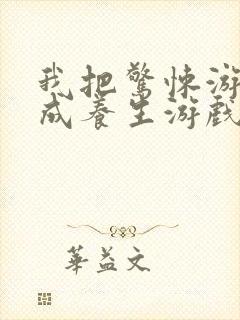 我把驚悚游
成養生游戲
華益文